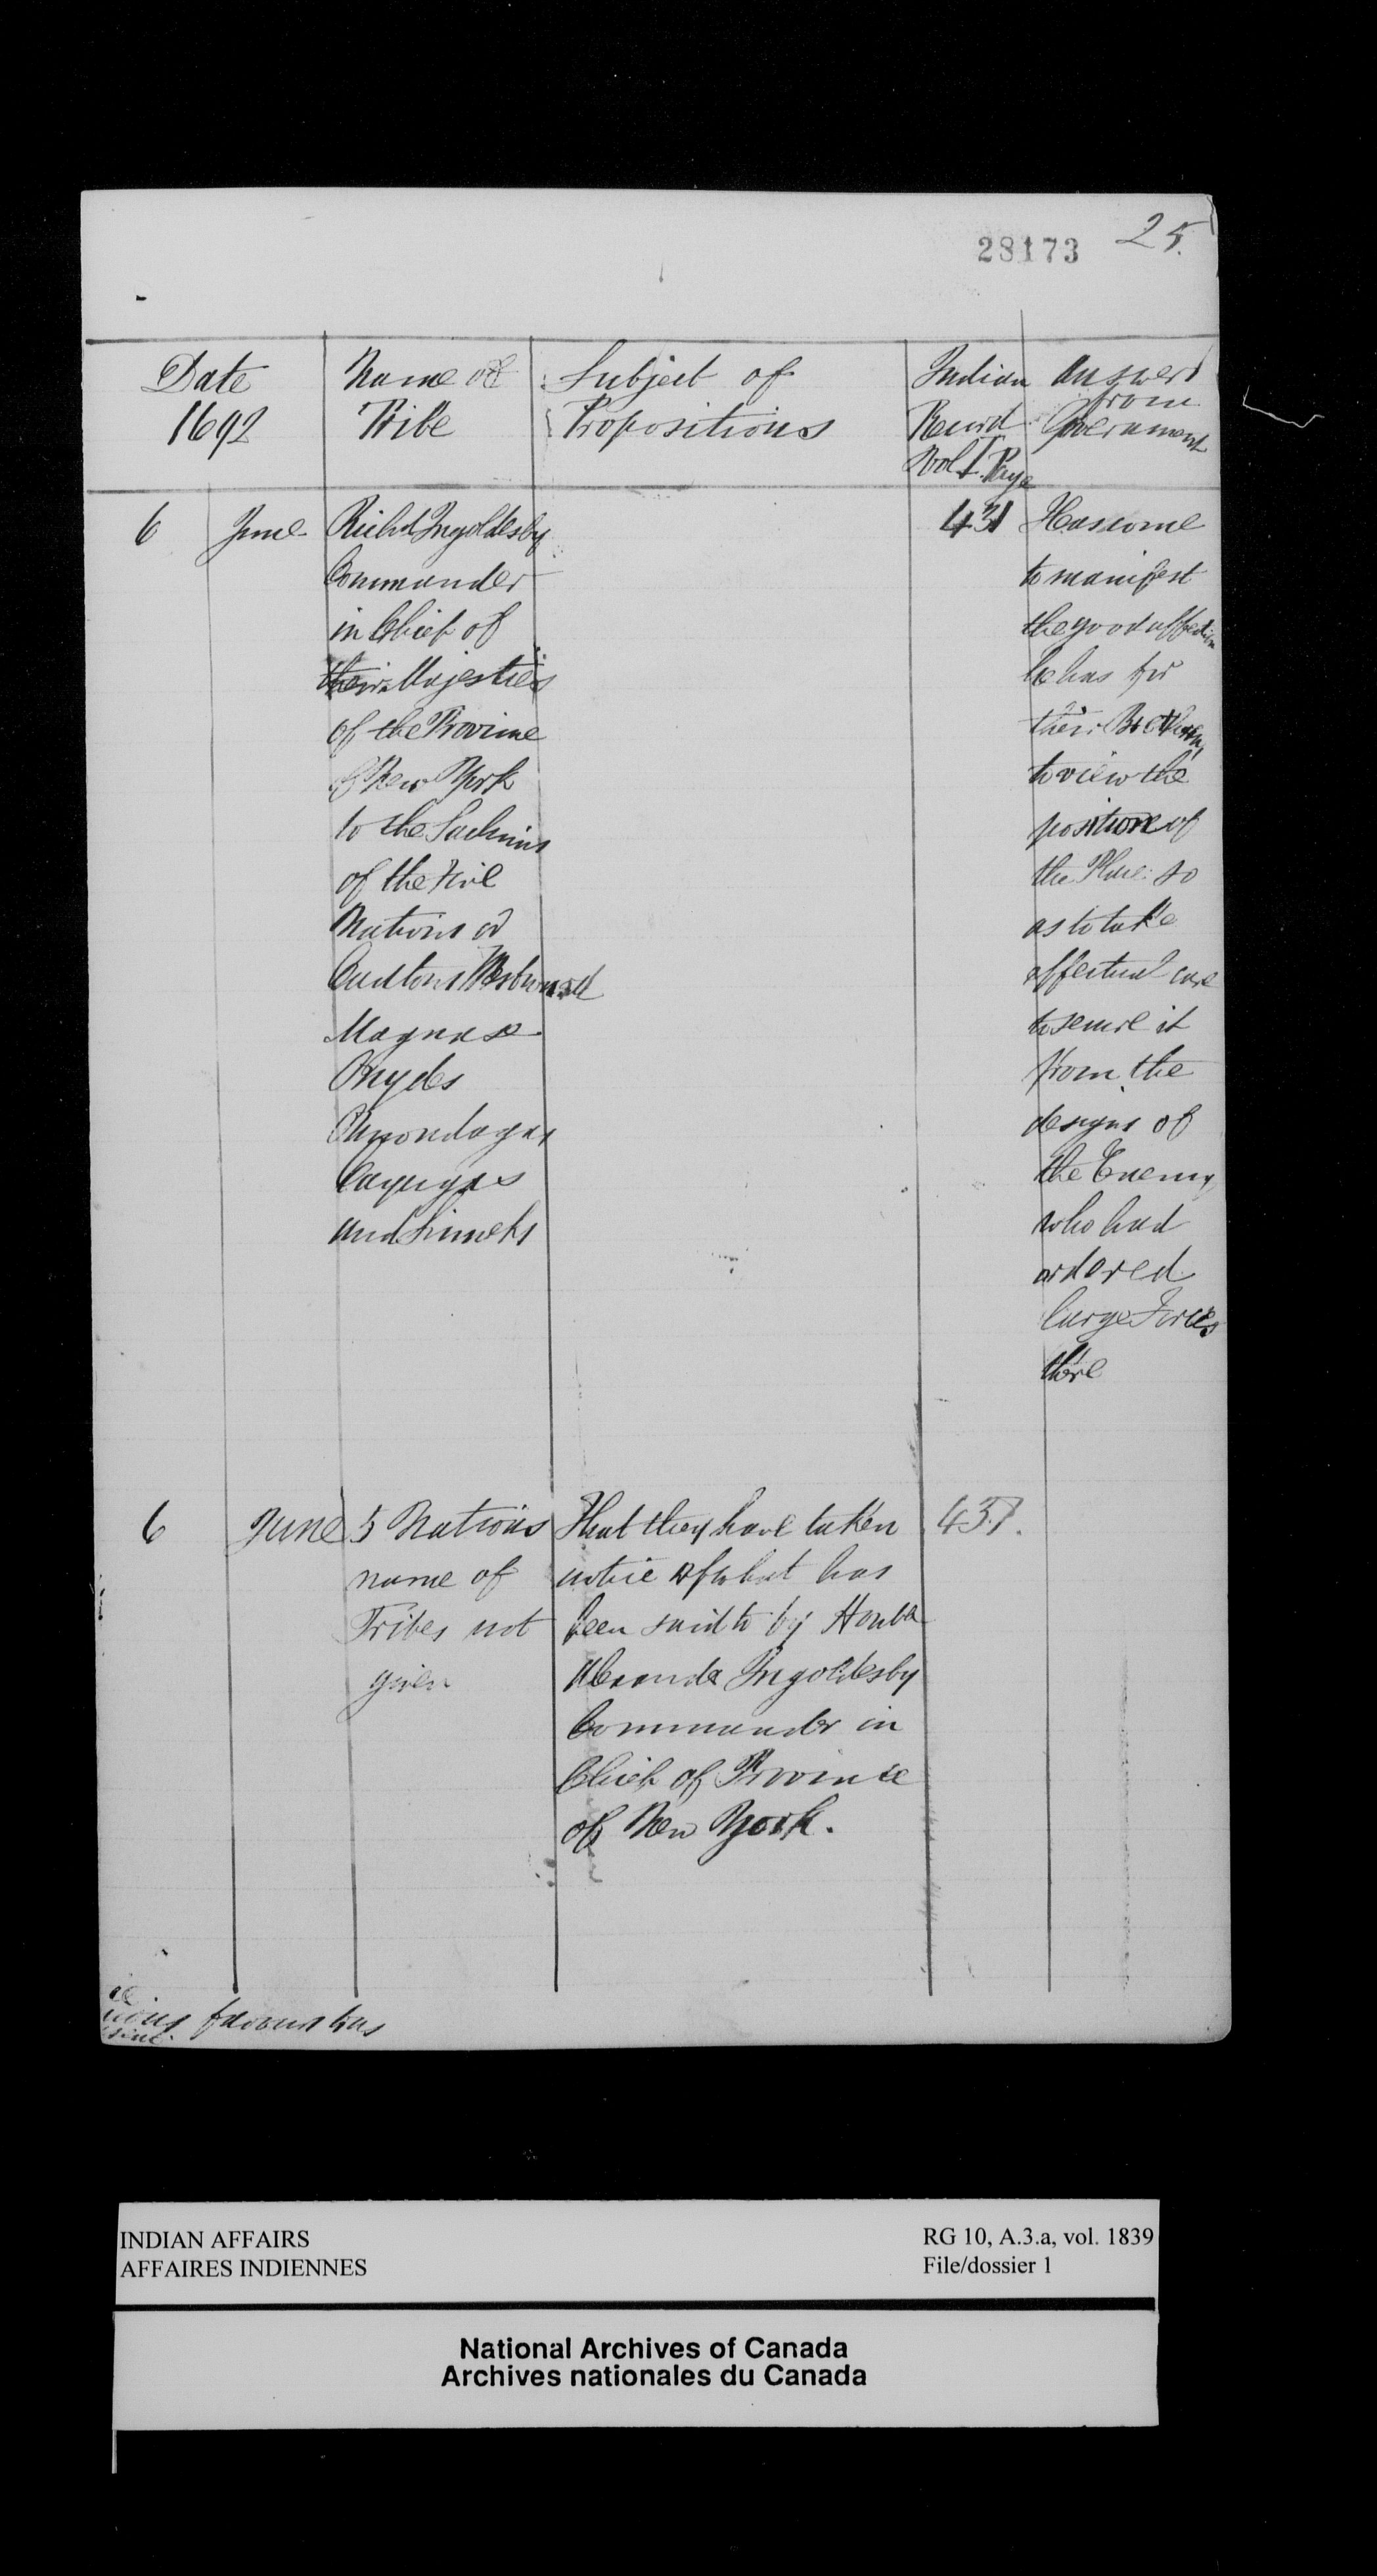 28173 25.
Date
1692
Name of
Tribe
Subject of
Propositions
Indian
Record
Vol I. Page
Answers
from
Government
6 June
Richd Ingoldesby
Commander
in Chief of
their Majesties
of the Province
of New York
to the Sachims
of the Five
Nations or
Cantons Westward
Maquase
Onydes
Onnondages
Cayugas
and Sinneks
431
Has come
to manifest
the good affection
he has for
their Brethren,
to view the
position of
the Place so
as to take
effectual care
to secure it
from the
designs of
the Enemy,
who had
ordered
large Forces
there
6 June
5 Nations
name of
Tribes not
given
That they have taken
notice of what has
been said to by Honble
Ingoldesby
Commander in
Chief of Province
of New York.
437.
favour has
INDIAN AFFAIRS
AFFAIRES INDIENNES
RG 10, A.3.a, vol. 1839
File/dossier 1
National Archives of Canada
Archives nationales du Canada